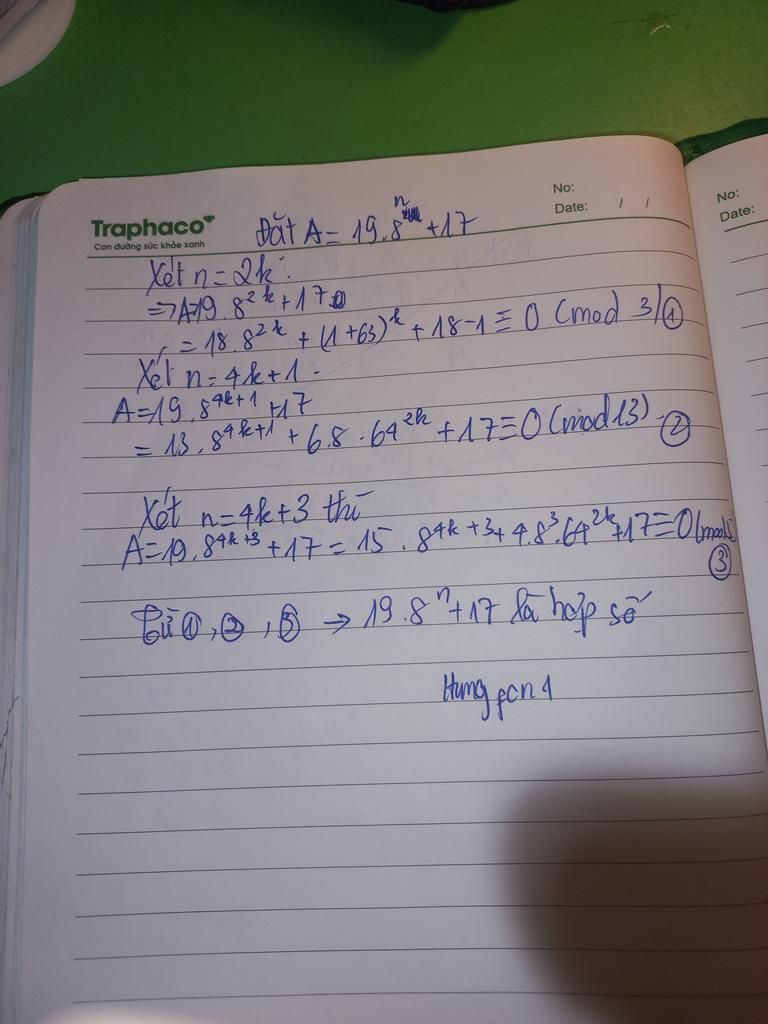 No:
Date: / /
Traphaco
Con đường sức khỏe xanh
Đặt A = 19.8^n + 17
Xét n = 2k:
=> A=19.8^{2k} + 17
= 18.8^{2k} + (1+63)^k + 18-1 ≡ 0 (mod 3) ①
Xét n = 4k+1.
A=19.8^{4k+1}+17
= 13.8^{4k+1} + 6.8.64^{2k} + 17 ≡ 0 (mod 13). ②
Xét n=4k+3 thì
A=19.8^{4k+3} + 17 = 15.8^{4k+3} + 4.8^3.64^{2k}+17 ≡ 0 (mod 5
③
Từ ①, ②, ③ → 19.8^n+17 là hợp số
No:
Date: